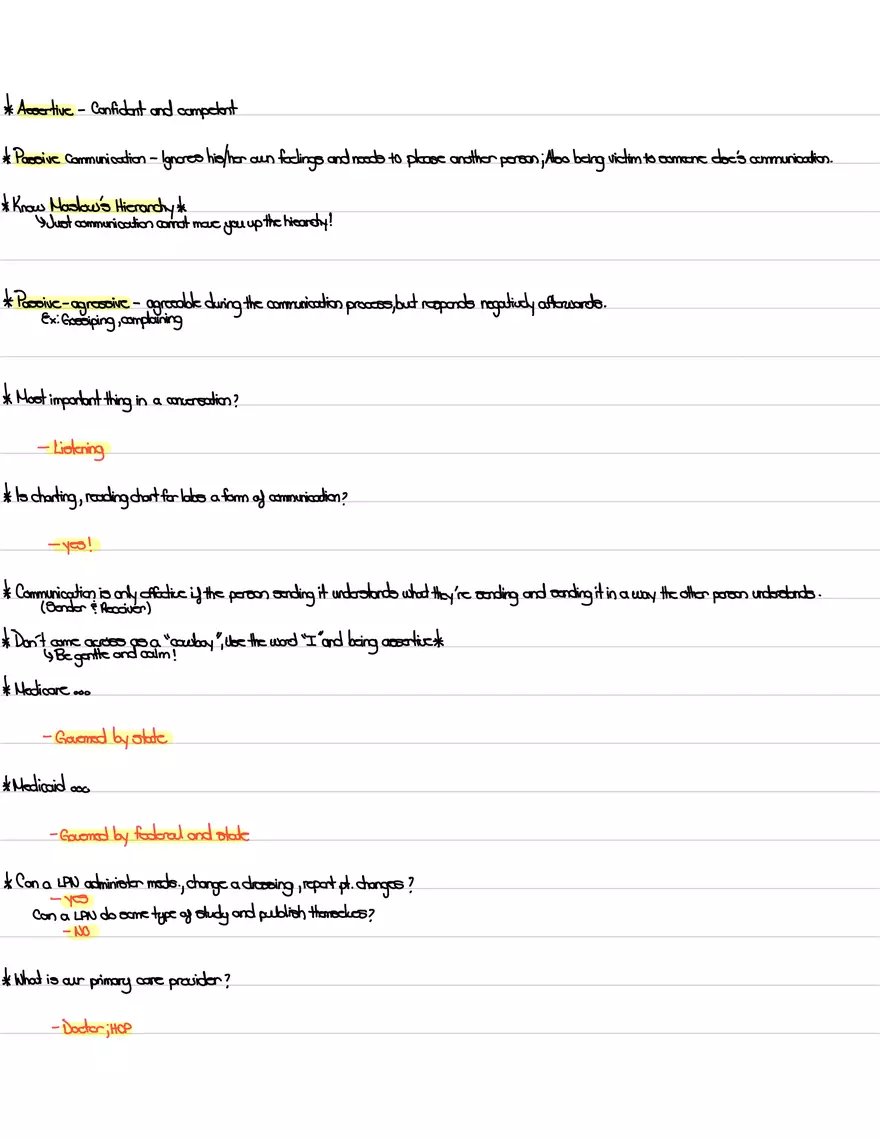 * Assertive - Confidant and competant
* Passive Communication - Ignores his/her own feelings and needs to please another person; Also being victim to someone else's communication.
* Know Maslow's Hierarchy *
↳ Just communication cannot move you up the hiearchy!
* Passive-agressive - agreeable during the communication process, but responds negatively afterwards.
Ex: Gossiping, complaining
* Most important thing in a conversation?
- Listening
* Is charting, reading chart for labs a form of communication?
- yes!
* Communication is only effective if the person sending it understands what they're sending and sending it in a way the other person understands.
(Sender & Receiver)
* Don't come across as a "cowboy", Use the word "I" and being assertive *
↳ Be gentle and calm!
* Medicare ...
- Governed by state
* Medicaid ...
- Governed by federal and state
* Can a LPN administer meds., change a dressing, report pt. changes?
- yes
Can a LPN do some type of study and publish themselves?
- NO
* What is our primary care provider?
- Doctor; HCP